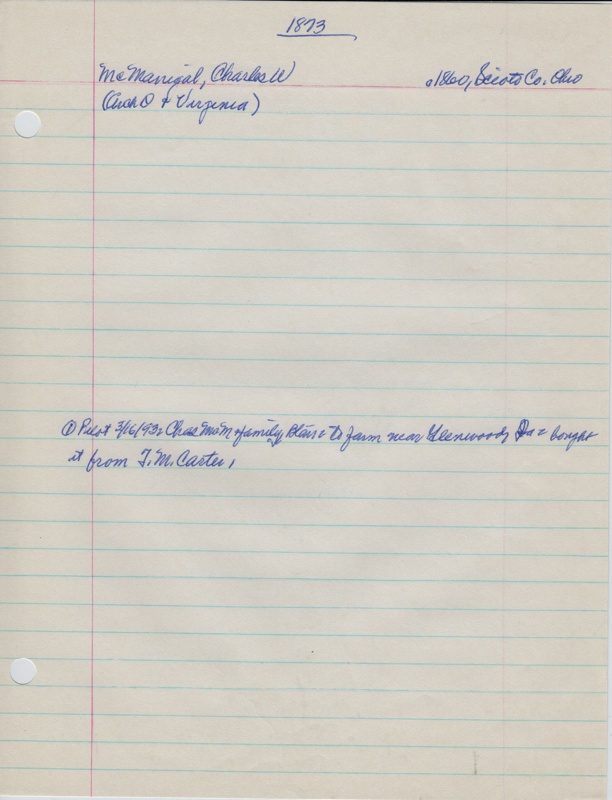 1873
McManigal, Charles W
c1860, Scioto Co. Ohio
(Arch O + Virginia)
① Pilot 3/16/93: Chas McM + family, Blair = to farm near Glenwood, Ia = bought
it from T. M. Carter,